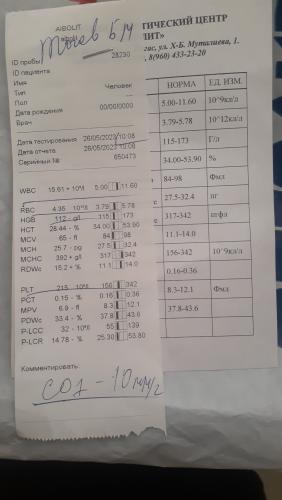 AIBOLIT
ТИЧЕСКИЙ ЦЕНТР
ЛИТ»
ул. Х-Б. Муталиева, 1.
8(960) 433-23-20
ID пробы 28230
ID пациента
Имя
Тип Человек
Пол
Дата рождения 00/00/0000
Врач
Дата тестирования 26/05/2023/10:08
Дата отчета 26/05/2023/10:08
Серийный № 650473
WBC 15.61 * 10^9 5.00 11.60
RBC 4.35 10^6 3.79 5.78
HGB 112 - g/l 115 173
HCT 28.44 - % 34.00 53.90
MCV 65 - fl 84 98
MCH 25.7 - pg 27.5 32.4
MCHC 392 + g/l 317 342
RDWc 15.2 + % 11.1 14.0
PLT 215 10^9 156 342
PCT 0.15 - % 0.16 0.36
MPV 6.9 - fl 8.3 12.1
PDWc 33.4 - % 37.8 43.6
P-LCC 32 - 10^6 55 139
P-LCR 14.78 - % 25.30 53.80
Комментировать:
СОЭ - 10 мм/г
НОРМА ЕД. ИЗМ.
5.00-11.60 10^9кл/л
3.79-5.78 10^12кл/л
115-173 Г/л
34.00-53.90 %
84-98 Фмл
27.5-32.4 пг
317-342 пгфл
11.1-14.0
156-342 10^9кл/л
0.16-0.36
8.3-12.1 Фмл
37.8-43.6